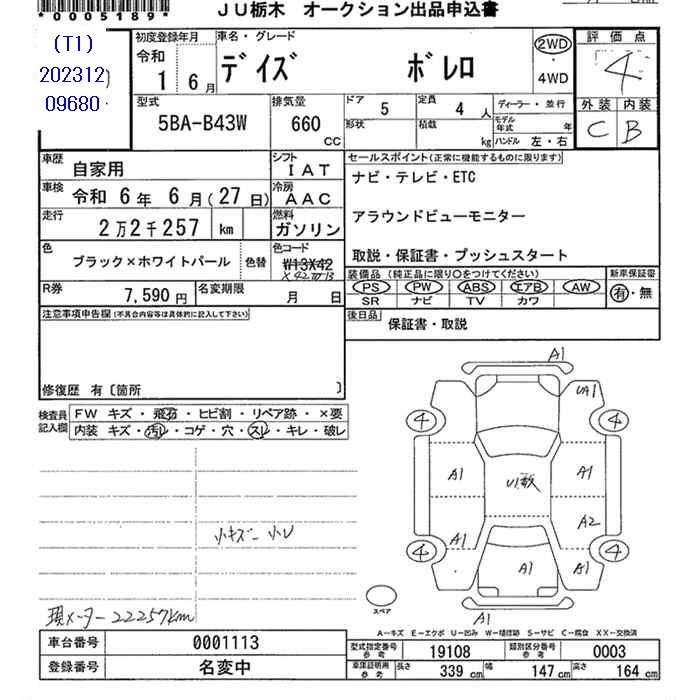 *0005189*
JU栃木 オークション出品申込書
(T1)
202312
09680
初度登録年月
令和
1 6月
車名・グレード
デイズ ボレロ
2WD
・
4WD
評価点
4
外装 内装
C B
型式
5BA-B43W
排気量
660 CC
ドア 5
形状
定員 4 人
積載 kg
ディーラー・並行
モデル年式 年
ハンドル 左・右
車歴 自家用
シフト IAT
車検 令和 6年 6月(27日)
冷房 AAC
走行 2万2千257 km
燃料 ガソリン
色 ブラック×ホワイトパール 色替
色コード W13X42
R券 7,590円
名変期限 月 日
セールスポイント(正常に機能するものに限ります)
ナビ・テレビ・ETC
アラウンドビューモニター
取説・保証書・プッシュスタート
装備品(純正品に限り○をつけてください)
PS PW ABS エアB AW
SR ナビ TV カワ
新車保証書
有・無
後日品 保証書・取説
注意事項申告欄(不具合内容等は具体的に記入して下さい)
修復歴 有〔箇所 〕
検査員記入欄
FW キズ・飛石・ヒビ割・リペア跡・×要
内装 キズ・汚レ・コゲ・穴・スレ・キレ・破レ
小キズ 小U
現メーター22257km
A1
UA1
4 4
A1 U1散 A1
A1 A2
4 4
A1 A1
A1
スペア
A-キズ E-エクボ U-凹み W-補修跡 S-サビ C-腐食 XX-交換済
車台番号 0001113
登録番号 名変中
型式指定番号 参考 19108
類別区分番号 参考 0003
車庫証明用 参考 長さ 339 cm 幅 147 cm 高さ 164 cm